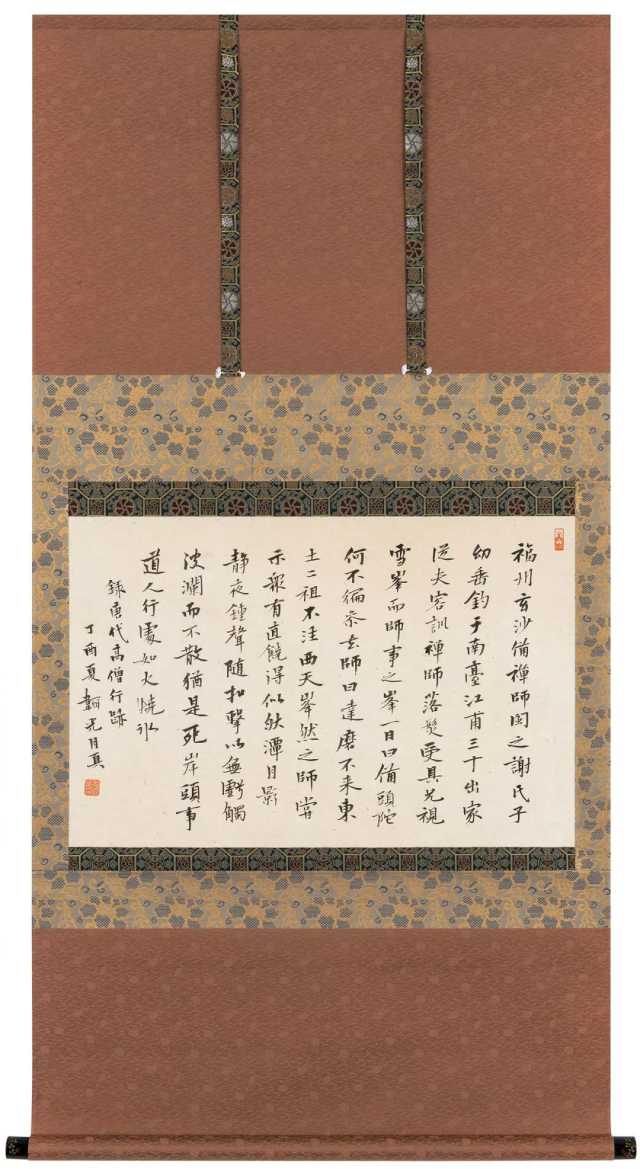 福州玄沙備禪師閩之謝氏子
幼垂釣于南臺江甫三十出家
從夫容訓禪師落髮受具兄視
雪峯而師事之峯一日曰備頭陀
何不徧叅去師曰達磨不来東
土二祖不往西天峯然之師嘗
示衆有直饒得似秋潭月影
静夜鐘聲隨扣擊以無虧觸
波瀾而不散猶是死岸頭事
道人行處如火燒氷
錄唐代高僧行跡
丁酉夏 月真